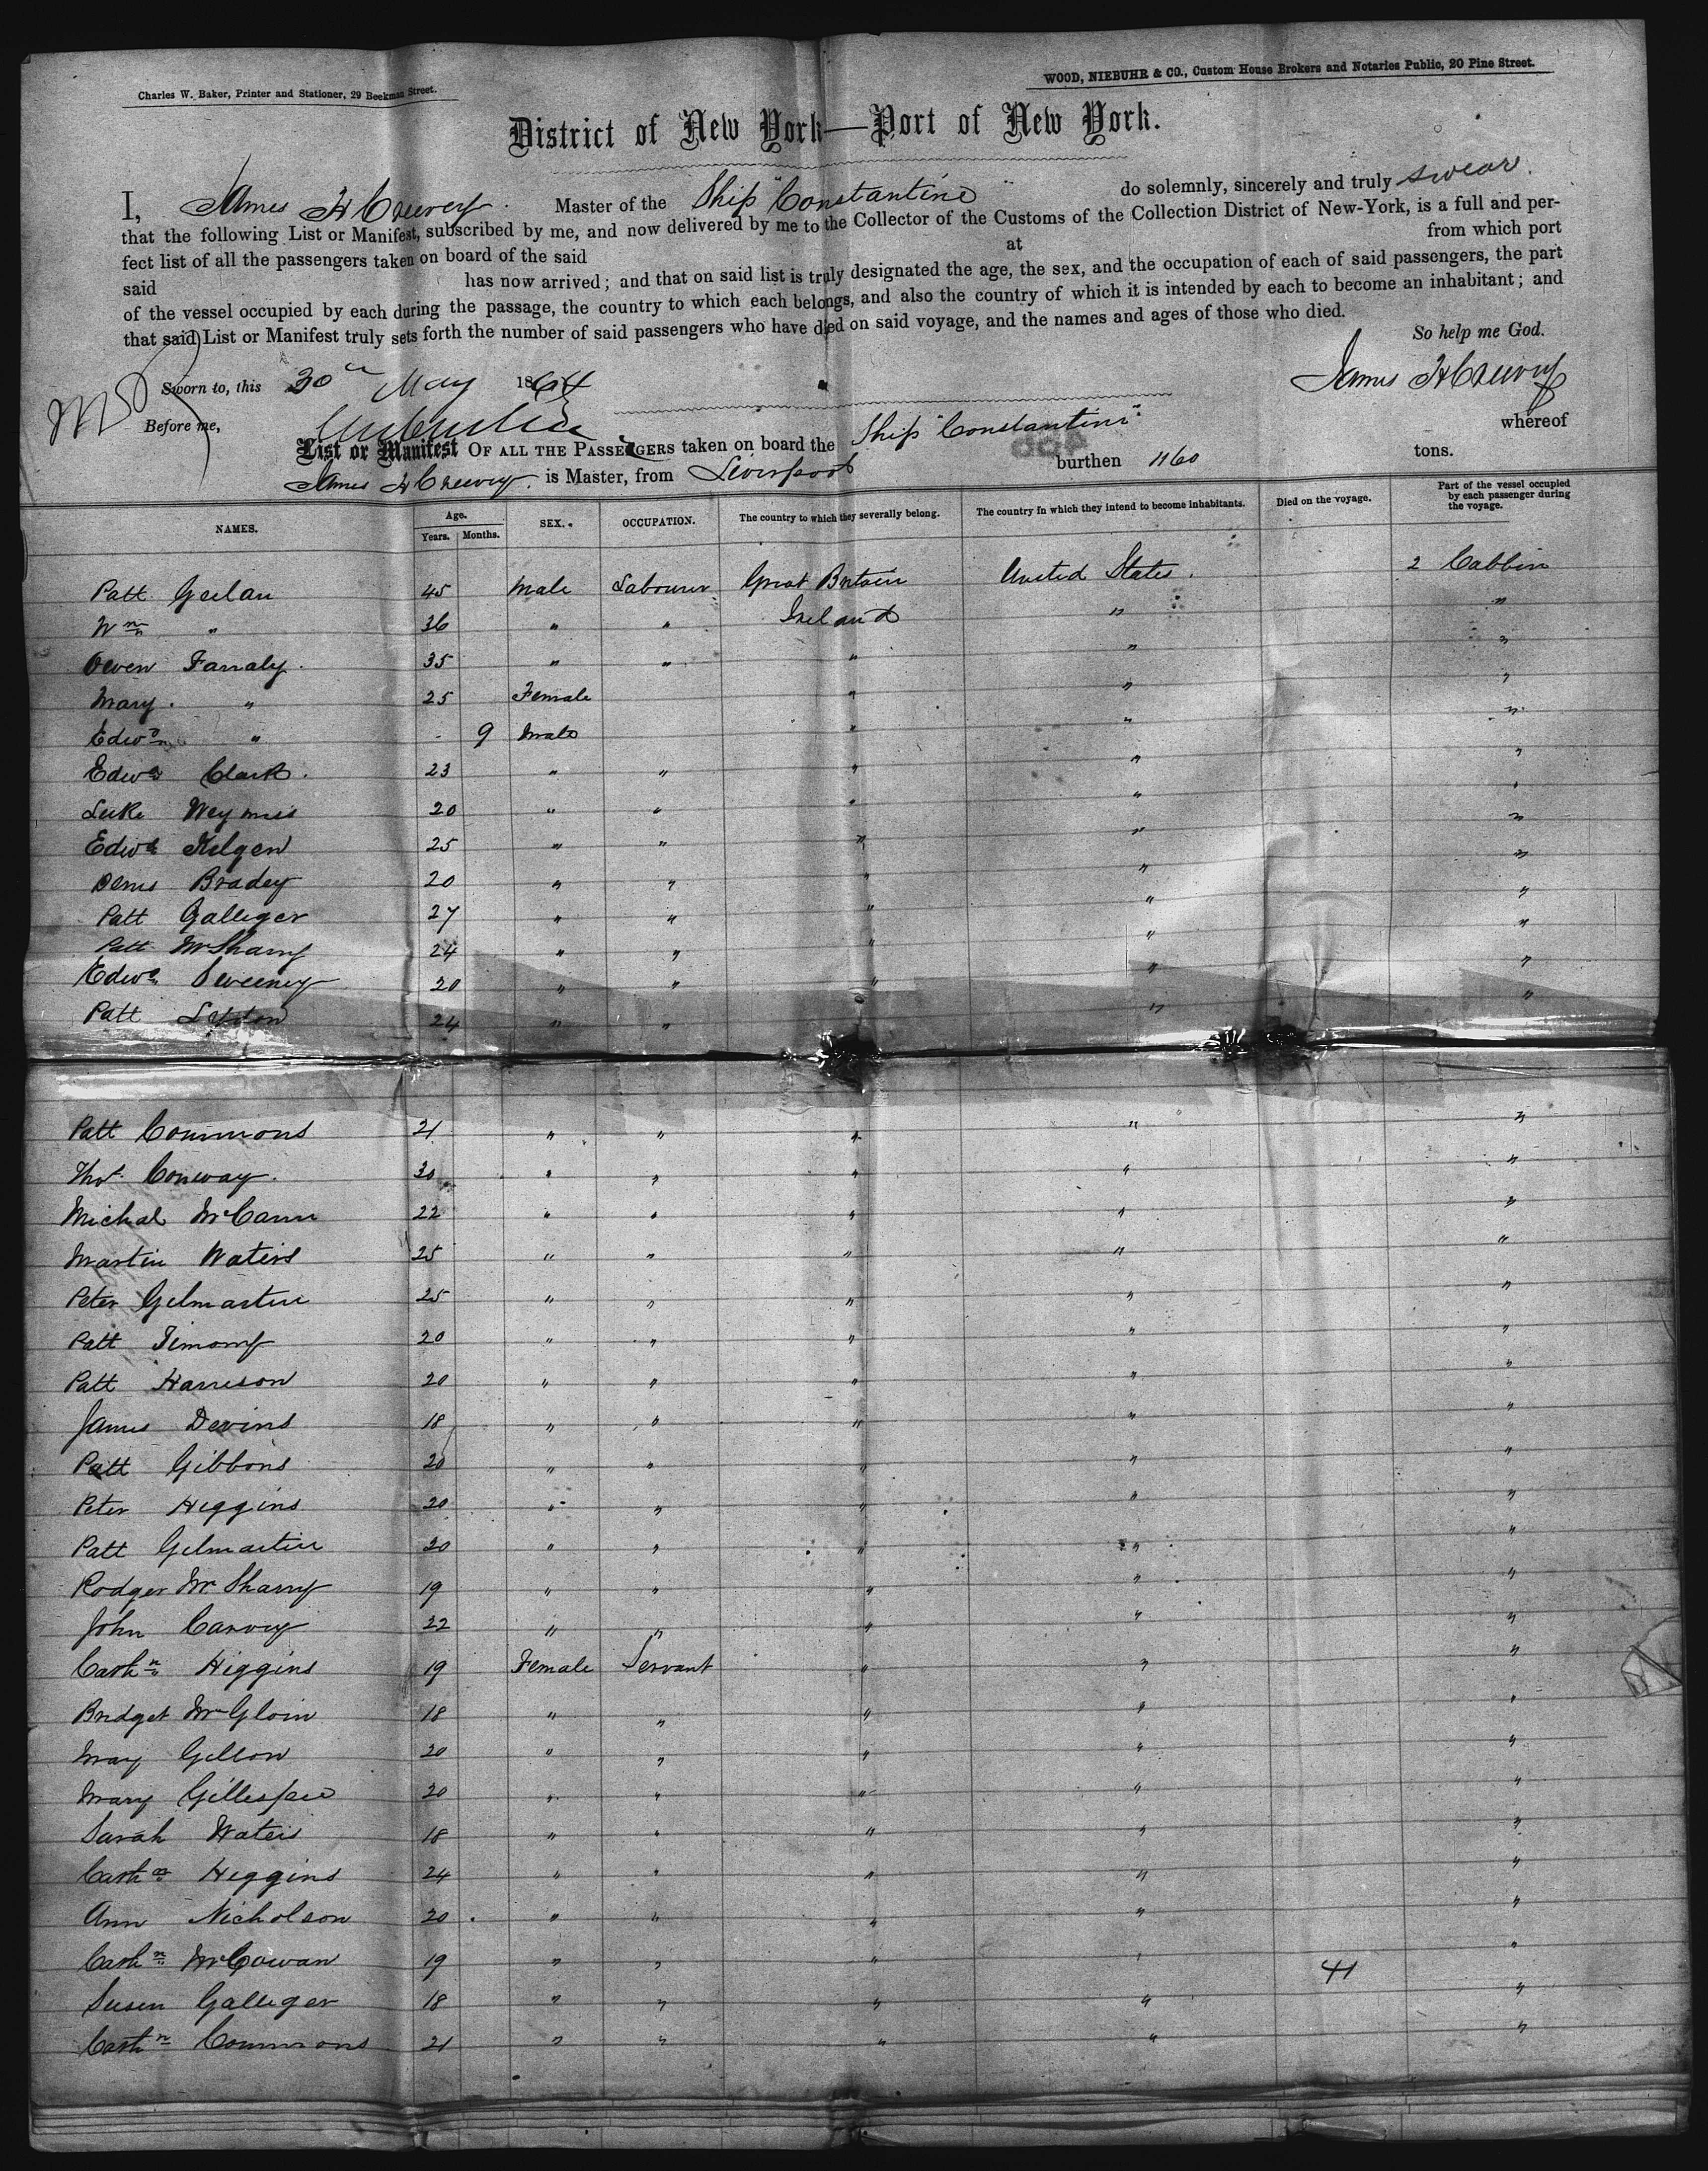 Charles W. Baker, Printer and Stationer, 29 Beekman Street.
WOOD, NIEBUHR & CO., Custom House Brokers and Notaries Public, 20 Pine Street.
District of New York—Port of New York.
I, James H Creevey. Master of the Ship "Constantine" do solemnly, sincerely and truly swear.
that the following List or Manifest, subscribed by me, and now delivered by me to the Collector of the Customs of the Collection District of New-York, is a full and per-
fect list of all the passengers taken on board of the said at from which port
said has now arrived; and that on said list is truly designated the age, the sex, and the occupation of each of said passengers, the part
of the vessel occupied by each during the passage, the country to which each belongs, and also the country of which it is intended by each to become an inhabitant; and
that said List or Manifest truly sets forth the number of said passengers who have died on said voyage, and the names and ages of those who died.
So help me God.
Sworn to, this 30th May 1864 James H Creevey
Before me,
List or Manifest OF ALL THE PASSENGERS taken on board the Ship "Constantine" whereof
James H Creevey. is Master, from Liverpool burthen 1160 tons.
NAMES. Age. Years. Months. SEX. OCCUPATION. The country to which they severally belong. The country in which they intend to become inhabitants. Died on the voyage. Part of the vessel occupied by each passenger during the voyage.
Patt Geelan 45 Male Labourer Great Britain United States. 2 Cabbin
Wm " 36 " " Ireland " "
Owen Farraly. 35 " " " " "
Mary. " 25 Female " " "
Edwd " - 9 Male " " "
Edwd Clark. 23 " " " " "
Luke Weymes 20 " " " " "
Edwd Kilgen 25 " " " " "
Denis Bradey 20 " " " " "
Patt Galleger 27 " " " " "
Patt McSharry 24 " " " " "
Edwd Sweeney 20 " " " " "
Patt 24 " " " "
Patt Commons 21 " " " " "
Thos. Conway. 30 " " " " "
Michal McCann 22 " " " " "
Martin Waters 25 " " " " "
Peter Gilmartin 25 " " " " "
Patt Timony 20 " " " " "
Patt Harrison 20 " " " " "
James Devins 18 " " " " "
Patt Gibbons 20 " " " " "
Peter Higgins 20 " " " " "
Patt Gilmartin 20 " " " " "
Rodger McSharry 19 " " " " "
John Carvey 22 " " " " "
Cathn Higgins 19 Female Servant " " "
Bridget McGloin 18 " " " " "
May Gillon 20 " " " " "
Mary Gillespie 20 " " " " "
Sarah Waters 18 " " " " "
Cathn Higgins 24 " " " " "
Ann Nicholson 20 " " " " "
Cathn McGowan 19 " " " " "
41
Susen Galleger 18 " " " " "
Cathn Commons 21 " " " " "